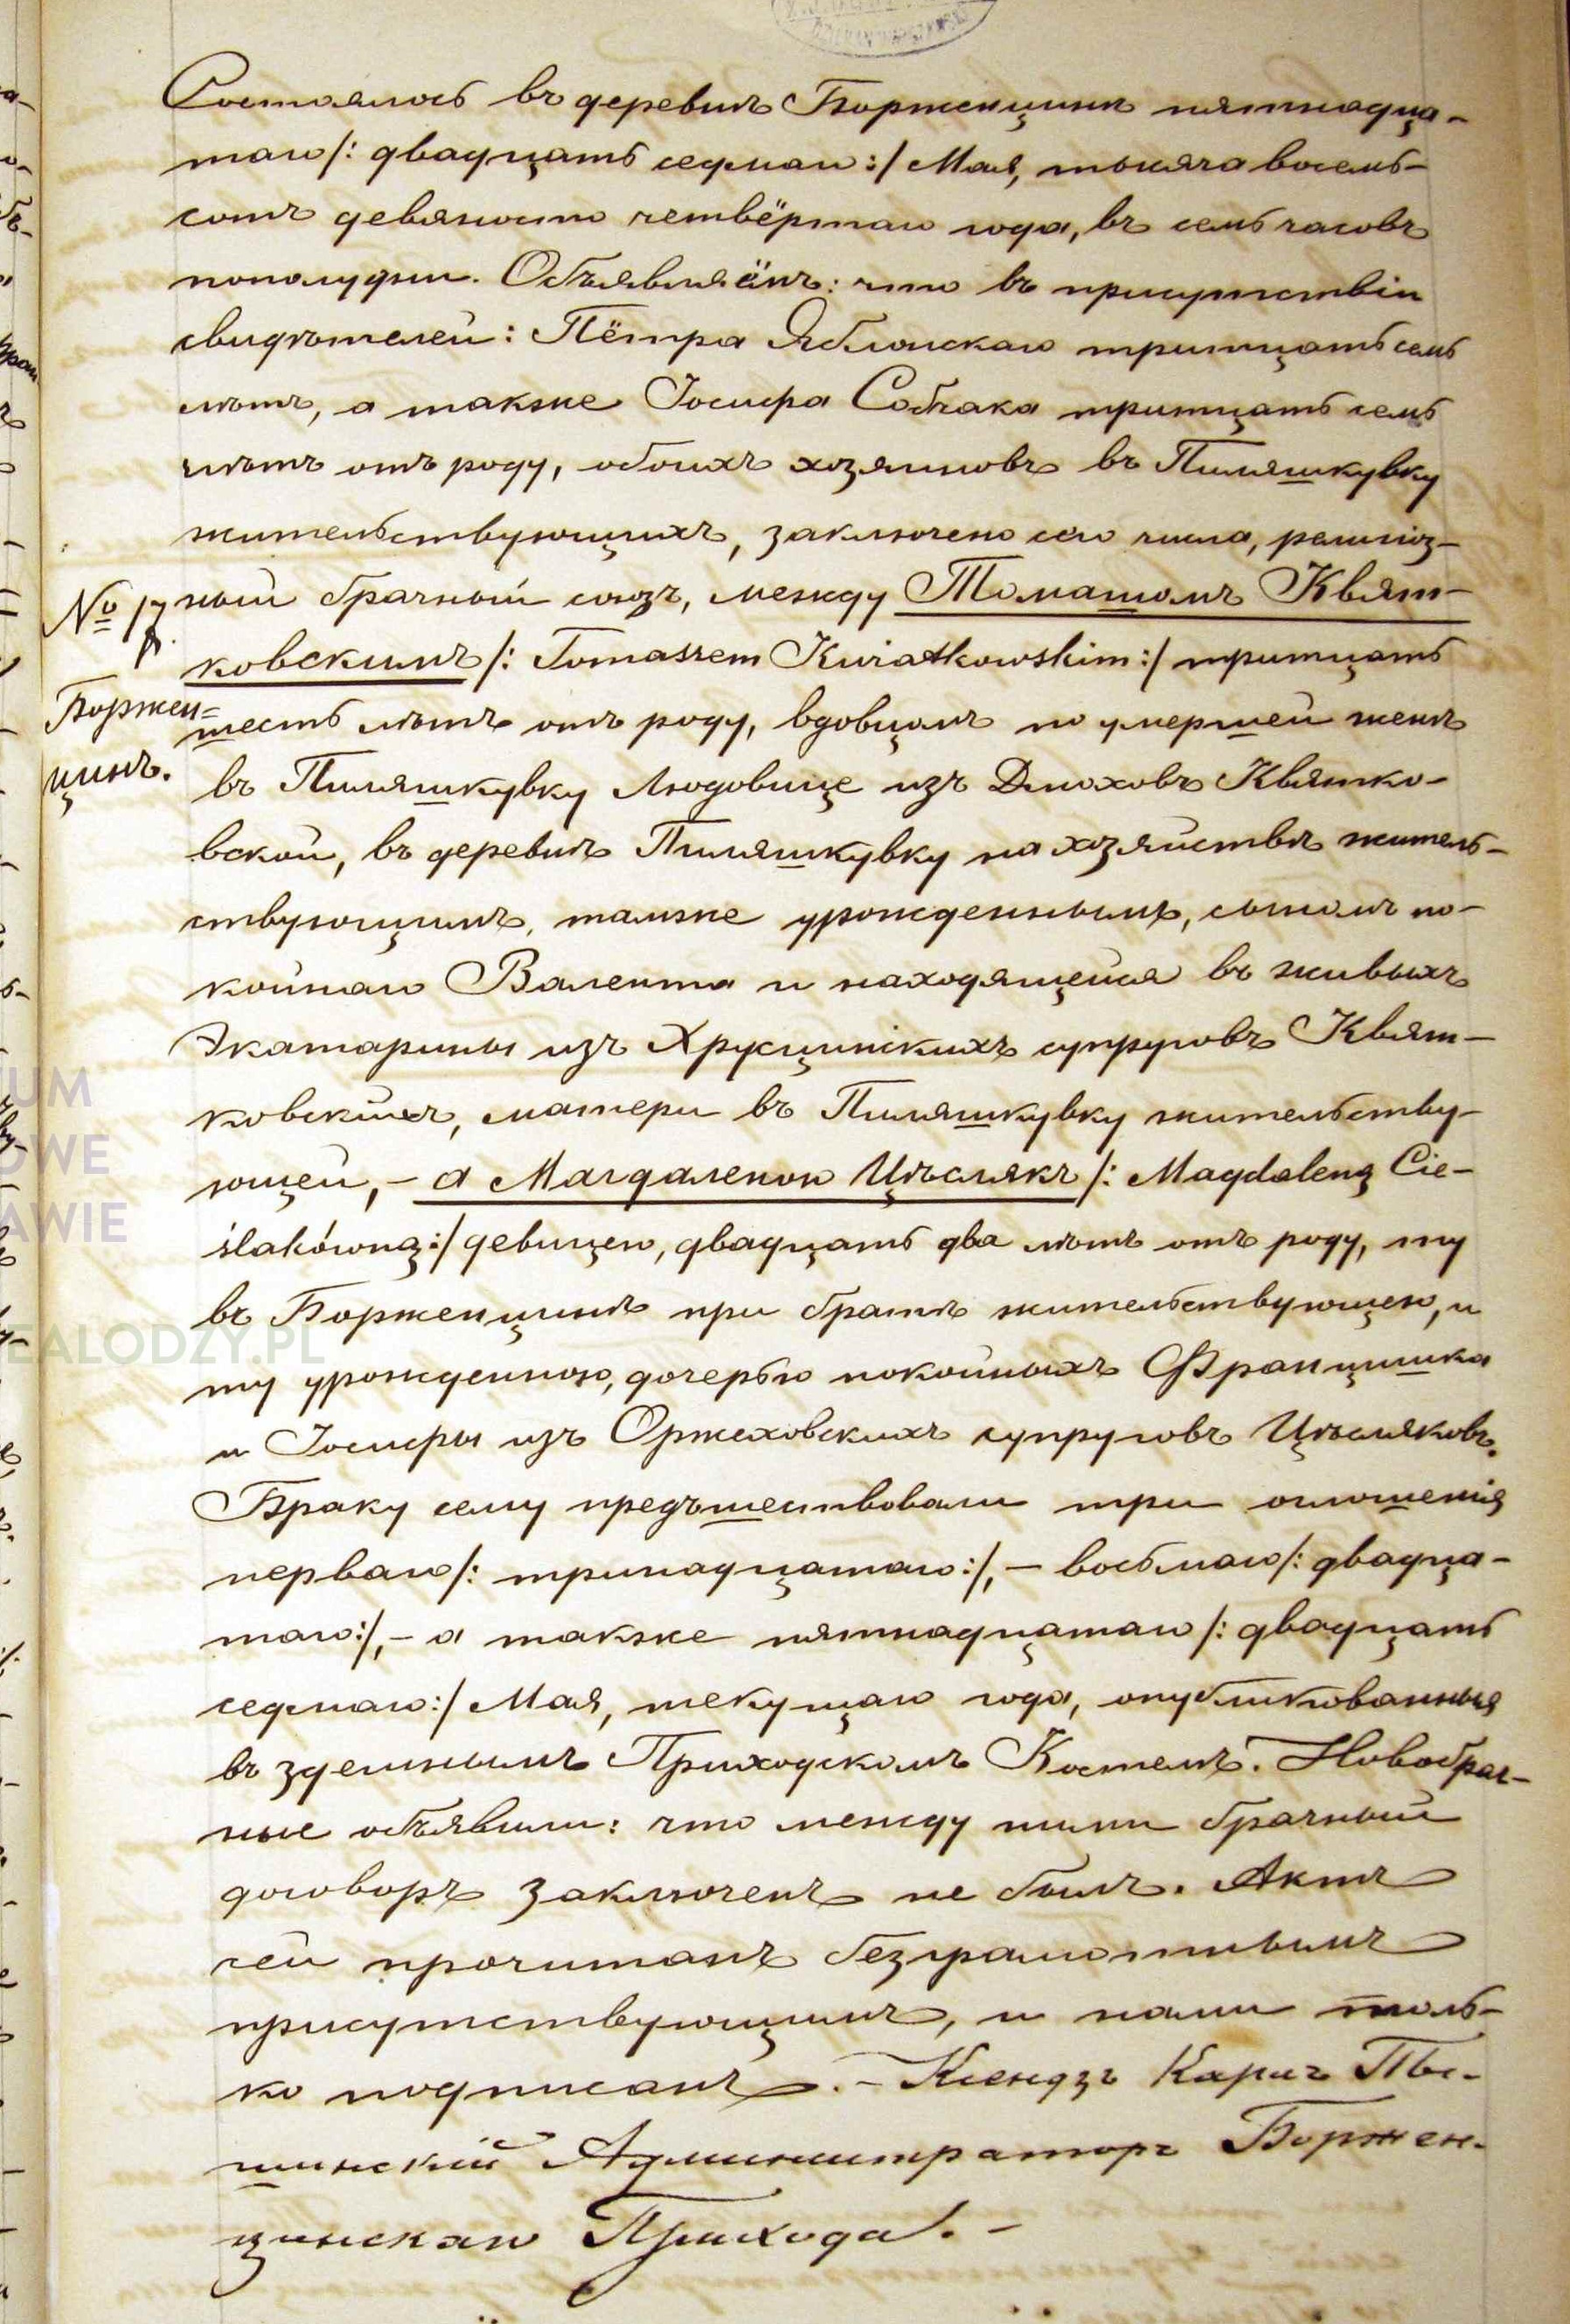 Состоялось въ деревнѣ Борженцинѣ пятнадца-
таго /: двадцать седмаго :/ Мая, тысяча восемь-
сотъ девяносто четвёртаго года, въ семь часовъ
пополудни. Объявляёмъ: что въ присутствіи
свидѣтелей: Пётра Яблонскаго тритцать семь
лѣтъ, а также Іосифа Собчака тритцать семь
лѣтъ отъ роду, обоихъ хозяиновъ въ Пиляшкувку
жительствующихъ, заключено сего числа, религіоз-
№ 17 ный брачный союзъ, между Томашомъ Квят-
ковскимъ /: Tomaszem Kwiatkowskim :/ тритцать
Борженцинъ.
шесть лѣтъ отъ роду, вдовцомъ по умершей женѣ
въ Пиляшкувку Людовице изъ Дмоховъ Квятко-
вской, въ деревнѣ Пиляшкувку на хозяйствѣ житель-
ствующимъ, тамже урожденнымъ, сыномъ по-
койнаго Валента и находящейся въ живыхъ
Экатарины изъ Хрусцинскихъ супруговъ Квят-
ковскихъ, матери въ Пиляшкувку жительству-
ющей, - а Магдаленою Цѣслякъ /: Magdaleną Cie-
ślakówną :/ девицею, двадцать два лѣтъ отъ роду, ту
въ Борженцинѣ при братѣ жительствующею, и
ту урожденною, дочерью покойныхъ Францишка
и Іосифы изъ Оржеховскихъ супруговъ Цѣсляковъ.
Браку сему предъшествовали три оглошенія
перваго /: тринадцатаго :/, - восьмаго /: двадца-
таго :/, - а также пятнадцатаго /: двадцать
седмаго :/ Мая, текущаго года, опубликованныя
въ здешнымъ Приходскомъ Костелѣ. Новобрач-
ные объявили: что между ними брачный
договоръ заключенъ не былъ. Актъ
сей прочитанъ безграмотнымъ
присутствующимъ, и нами толь-
ко подписанъ. - Ксендзъ Карлъ
Администраторъ Боржен-
цинскаго Прихода. -